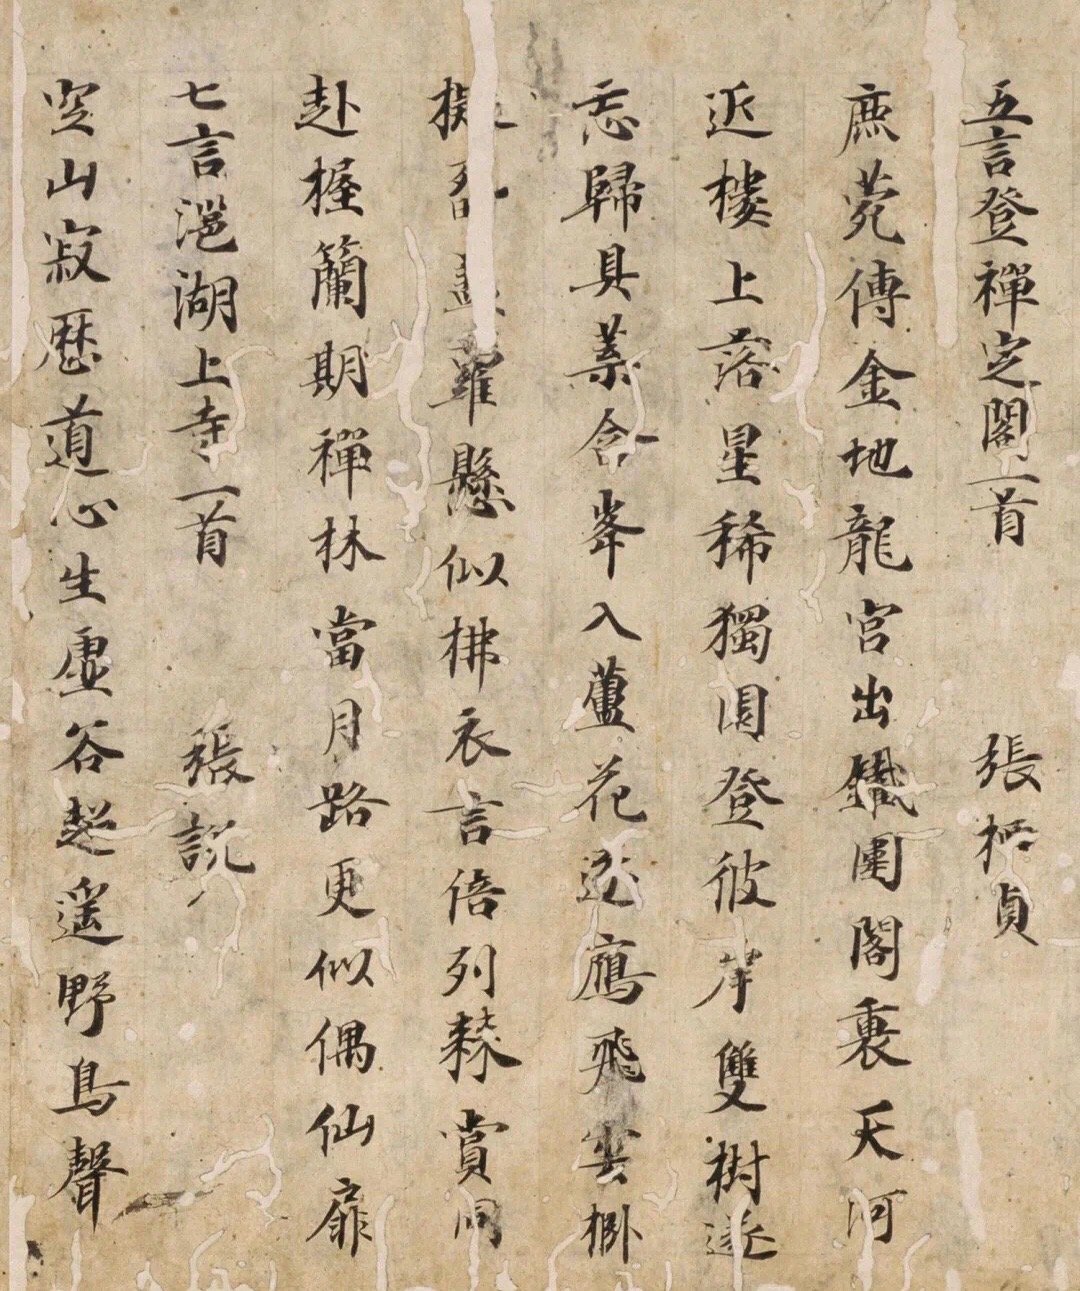 五言登禪定閣一首 張栖貞
鹿菀傳金地龍宮出鐵圍閣裏天河
近樓上落星稀獨園登彼岸雙樹遂
忘歸具葉含峯入蘆花逐鴈飛雲
擬羅懸似拂衣言倍列棘賞同
赴握蘭期禪林當月路更似偶仙扉
七言㴩湖上寺一首 張説
空山寂歴道心生虚谷超遥野鳥聲